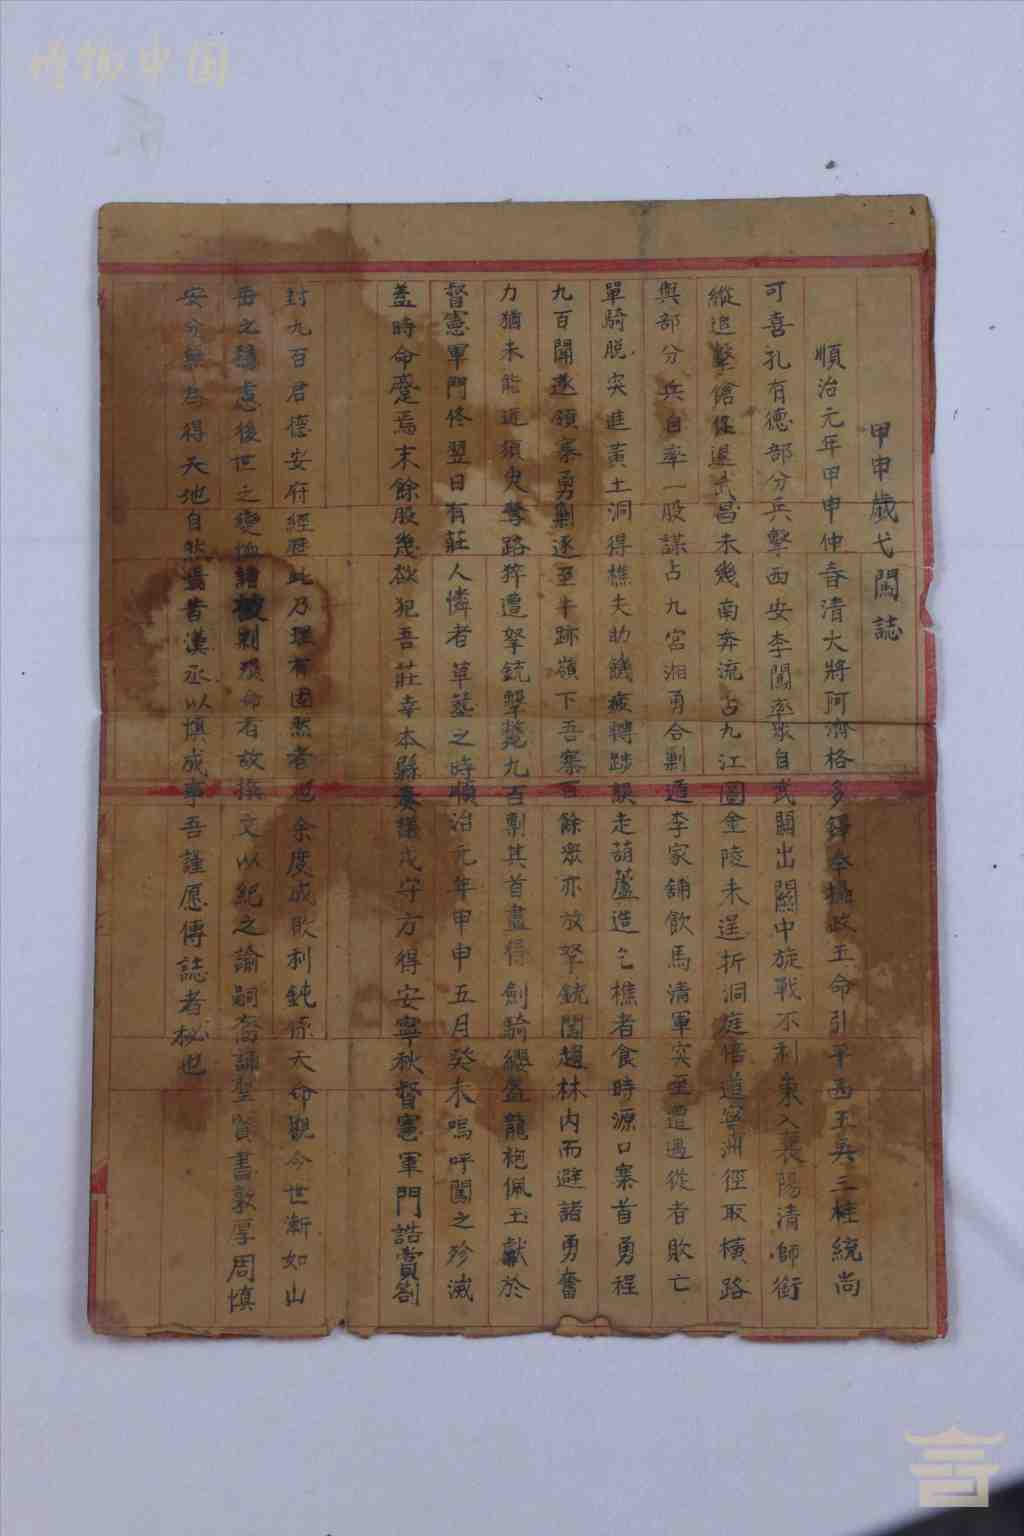 博物中国
甲申歲弋闖誌
順治元年甲申仲春清大將阿濟格多鐸奉攝政王命引平西王吳三桂統尚
可喜孔有德部分兵擊西安李闖率眾自武關出關中旋戰不利東入襄陽清師銜
縱追擊倉促退武昌未幾南奔流占九江圖金陵未逞折洞庭倍道寧洲徑取橫路
與部分兵自率一股謀占九宮湘勇合剿遁李家鋪飲馬清軍突至遭遇從者敗亡
單騎脫突進黃土洞得樵夫助饑疲轉踄誤走葫蘆造乞樵者食時源口寨首勇程
九百聞遂領寨勇剿逐至牛跡嶺下吾寨百餘眾亦放弩銃闖趨林內而避諸勇奮
力猶未能近須臾奪路猝遭弩銃擊斃九百剽其首盡得劍騎纓盔龍袍佩玉獻於
督憲軍門佟翌日有莊人憐者草塟之時順治元年甲申五月癸未嗚呼闖之殄滅
蓋時命蹇焉末餘股幾欲犯吾莊幸本縣委議戍守方得安寧秋督憲軍門誥賞劄
封九百君德安府經歷此乃理有固然者也余度成敗利鈍係天命觀今世漸如山
岳之穩慮後世之變 剿 命者故撰文以紀之諭嗣裔誦聖賢書敦厚周慎
安分無為得天地自然焉昔漢丞以慎成事吾謹愿傳誌者秘也